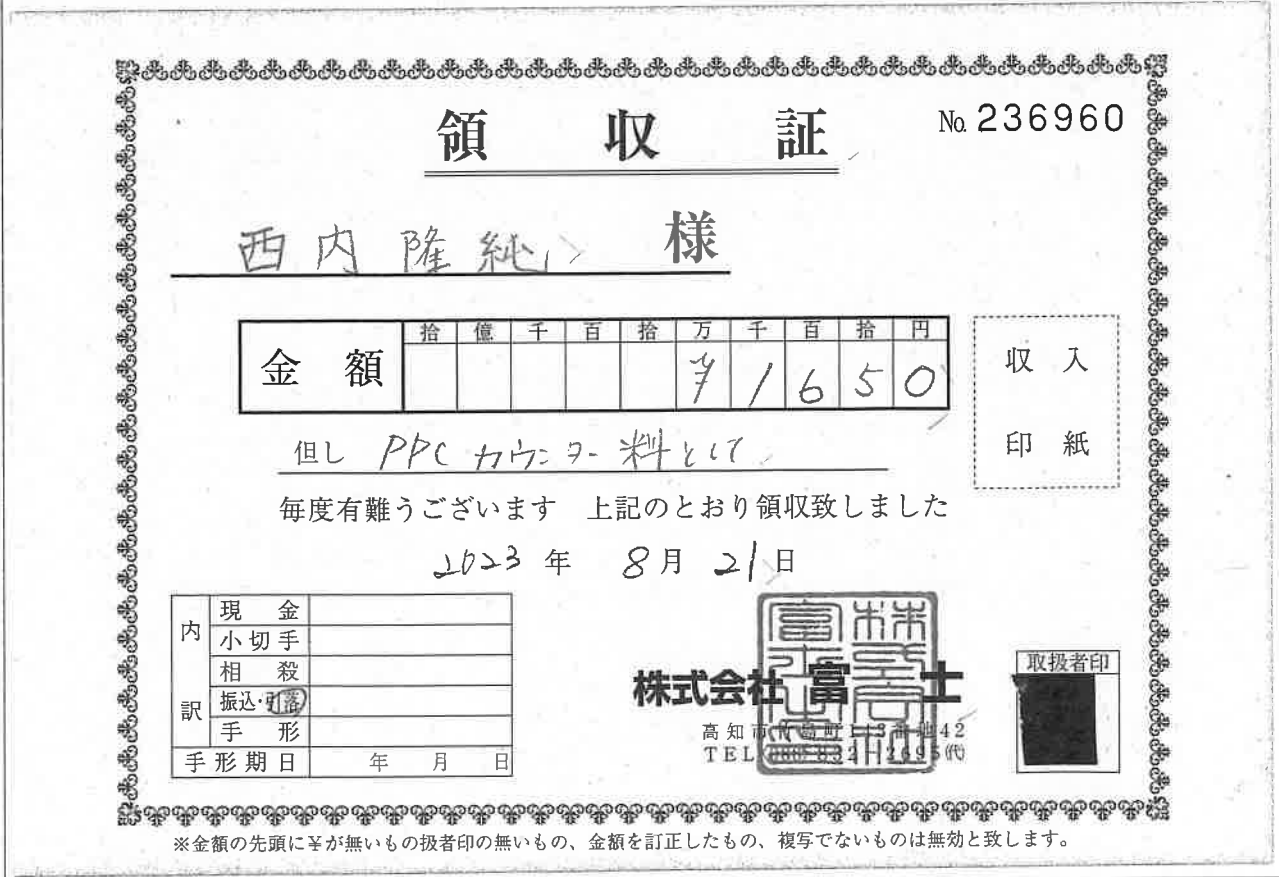 領収証
No. 236960
西内隆純 様
拾 億 千 百 拾 万 千 百 拾 円
金額 ¥1650
収入
印紙
但し PPCカウンター料として
毎度有難うございます 上記のとおり領収致しました
2023年 8月 21日
内訳
現金
小切手
相殺
振込・引落
手形
手形期日 年 月 日
株式会社 富士
高知市
42
TEL
(代)
取扱者印
※金額の先頭に¥が無いもの扱者印の無いもの、金額を訂正したもの、複写でないものは無効と致します。